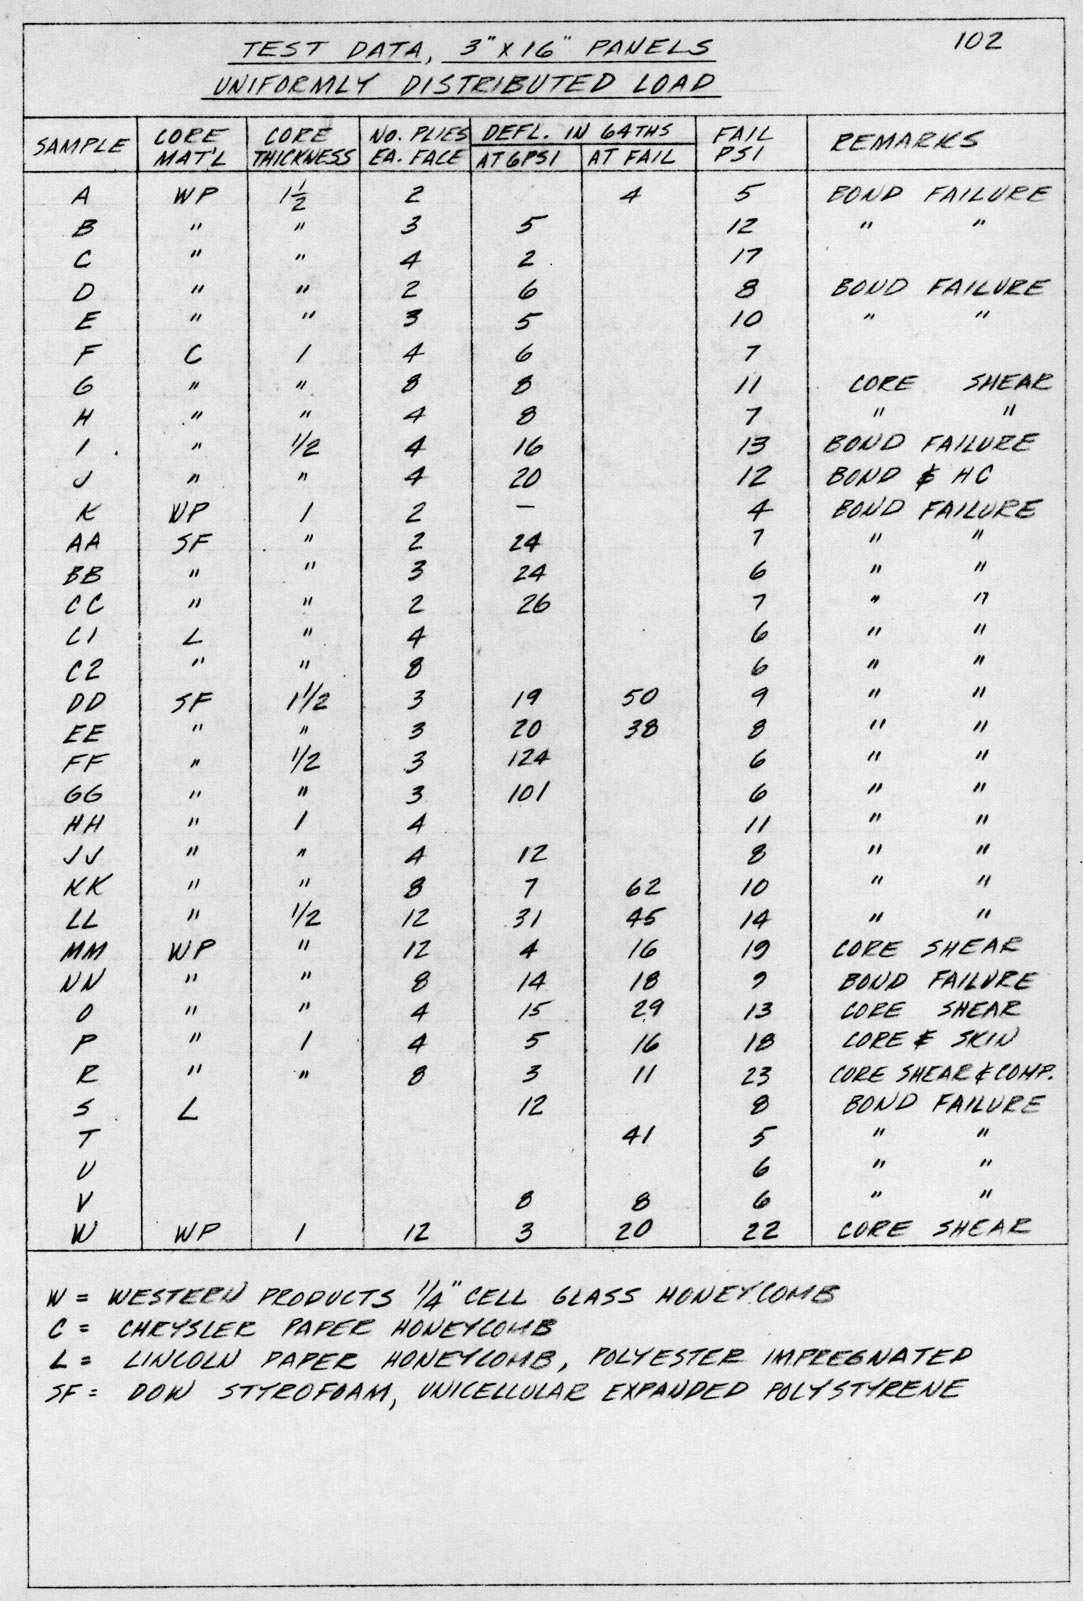 102
TEST DATA, 3" X 16" PANELS
UNIFORMLY DISTRIBUTED LOAD
SAMPLE CORE MAT'L CORE THICKNESS NO. PLIES EA. FACE DEFL. IN 64THS AT 6PSI AT FAIL FAIL PSI REMARKS
A WP 1 1/2 2 4 5 BOND FAILURE
B " " 3 5 12 " "
C " " 4 2 17
D " " 2 6 8 BOND FAILURE
E " " 3 5 10 " "
F C 1 4 6 7
G " " 8 8 11 CORE SHEAR
H " " 4 8 7 " "
I " 1/2 4 16 13 BOND FAILURE
J " " 4 20 12 BOND & HC
K WP 1 2 — 4 BOND FAILURE
AA SF " 2 24 7 " "
BB " " 3 24 6 " "
CC " " 2 26 7 " "
C1 L " 4 6 " "
C2 " " 8 6 " "
DD SF 1 1/2 3 19 50 9 " "
EE " " 3 20 38 8 " "
FF " 1/2 3 124 6 " "
GG " " 3 101 6 " "
HH " 1 4 11 " "
JJ " " 4 12 8 " "
KK " " 8 7 62 10 " "
LL " 1/2 12 31 45 14 " "
MM WP " 12 4 16 19 CORE SHEAR
NN " " 8 14 18 BOND FAILURE
O " " 4 15 29 13 CORE SHEAR
P " 1 4 5 16 18 CORE & SKIN
R " " 8 3 11 23 CORE SHEAR & COMP.
S L 12 8 BOND FAILURE
T 41 5 " "
U 6 " "
V 8 8 6 " "
W WP 1 12 3 20 22 CORE SHEAR
W = WESTERN PRODUCTS 1/4" CELL GLASS HONEYCOMB
C = CHRYSLER PAPER HONEYCOMB
L = LINCOLN PAPER HONEYCOMB, POLYESTER IMPREGNATED
SF = DOW STYROFOAM, UNICELLULAR EXPANDED POLYSTYRENE